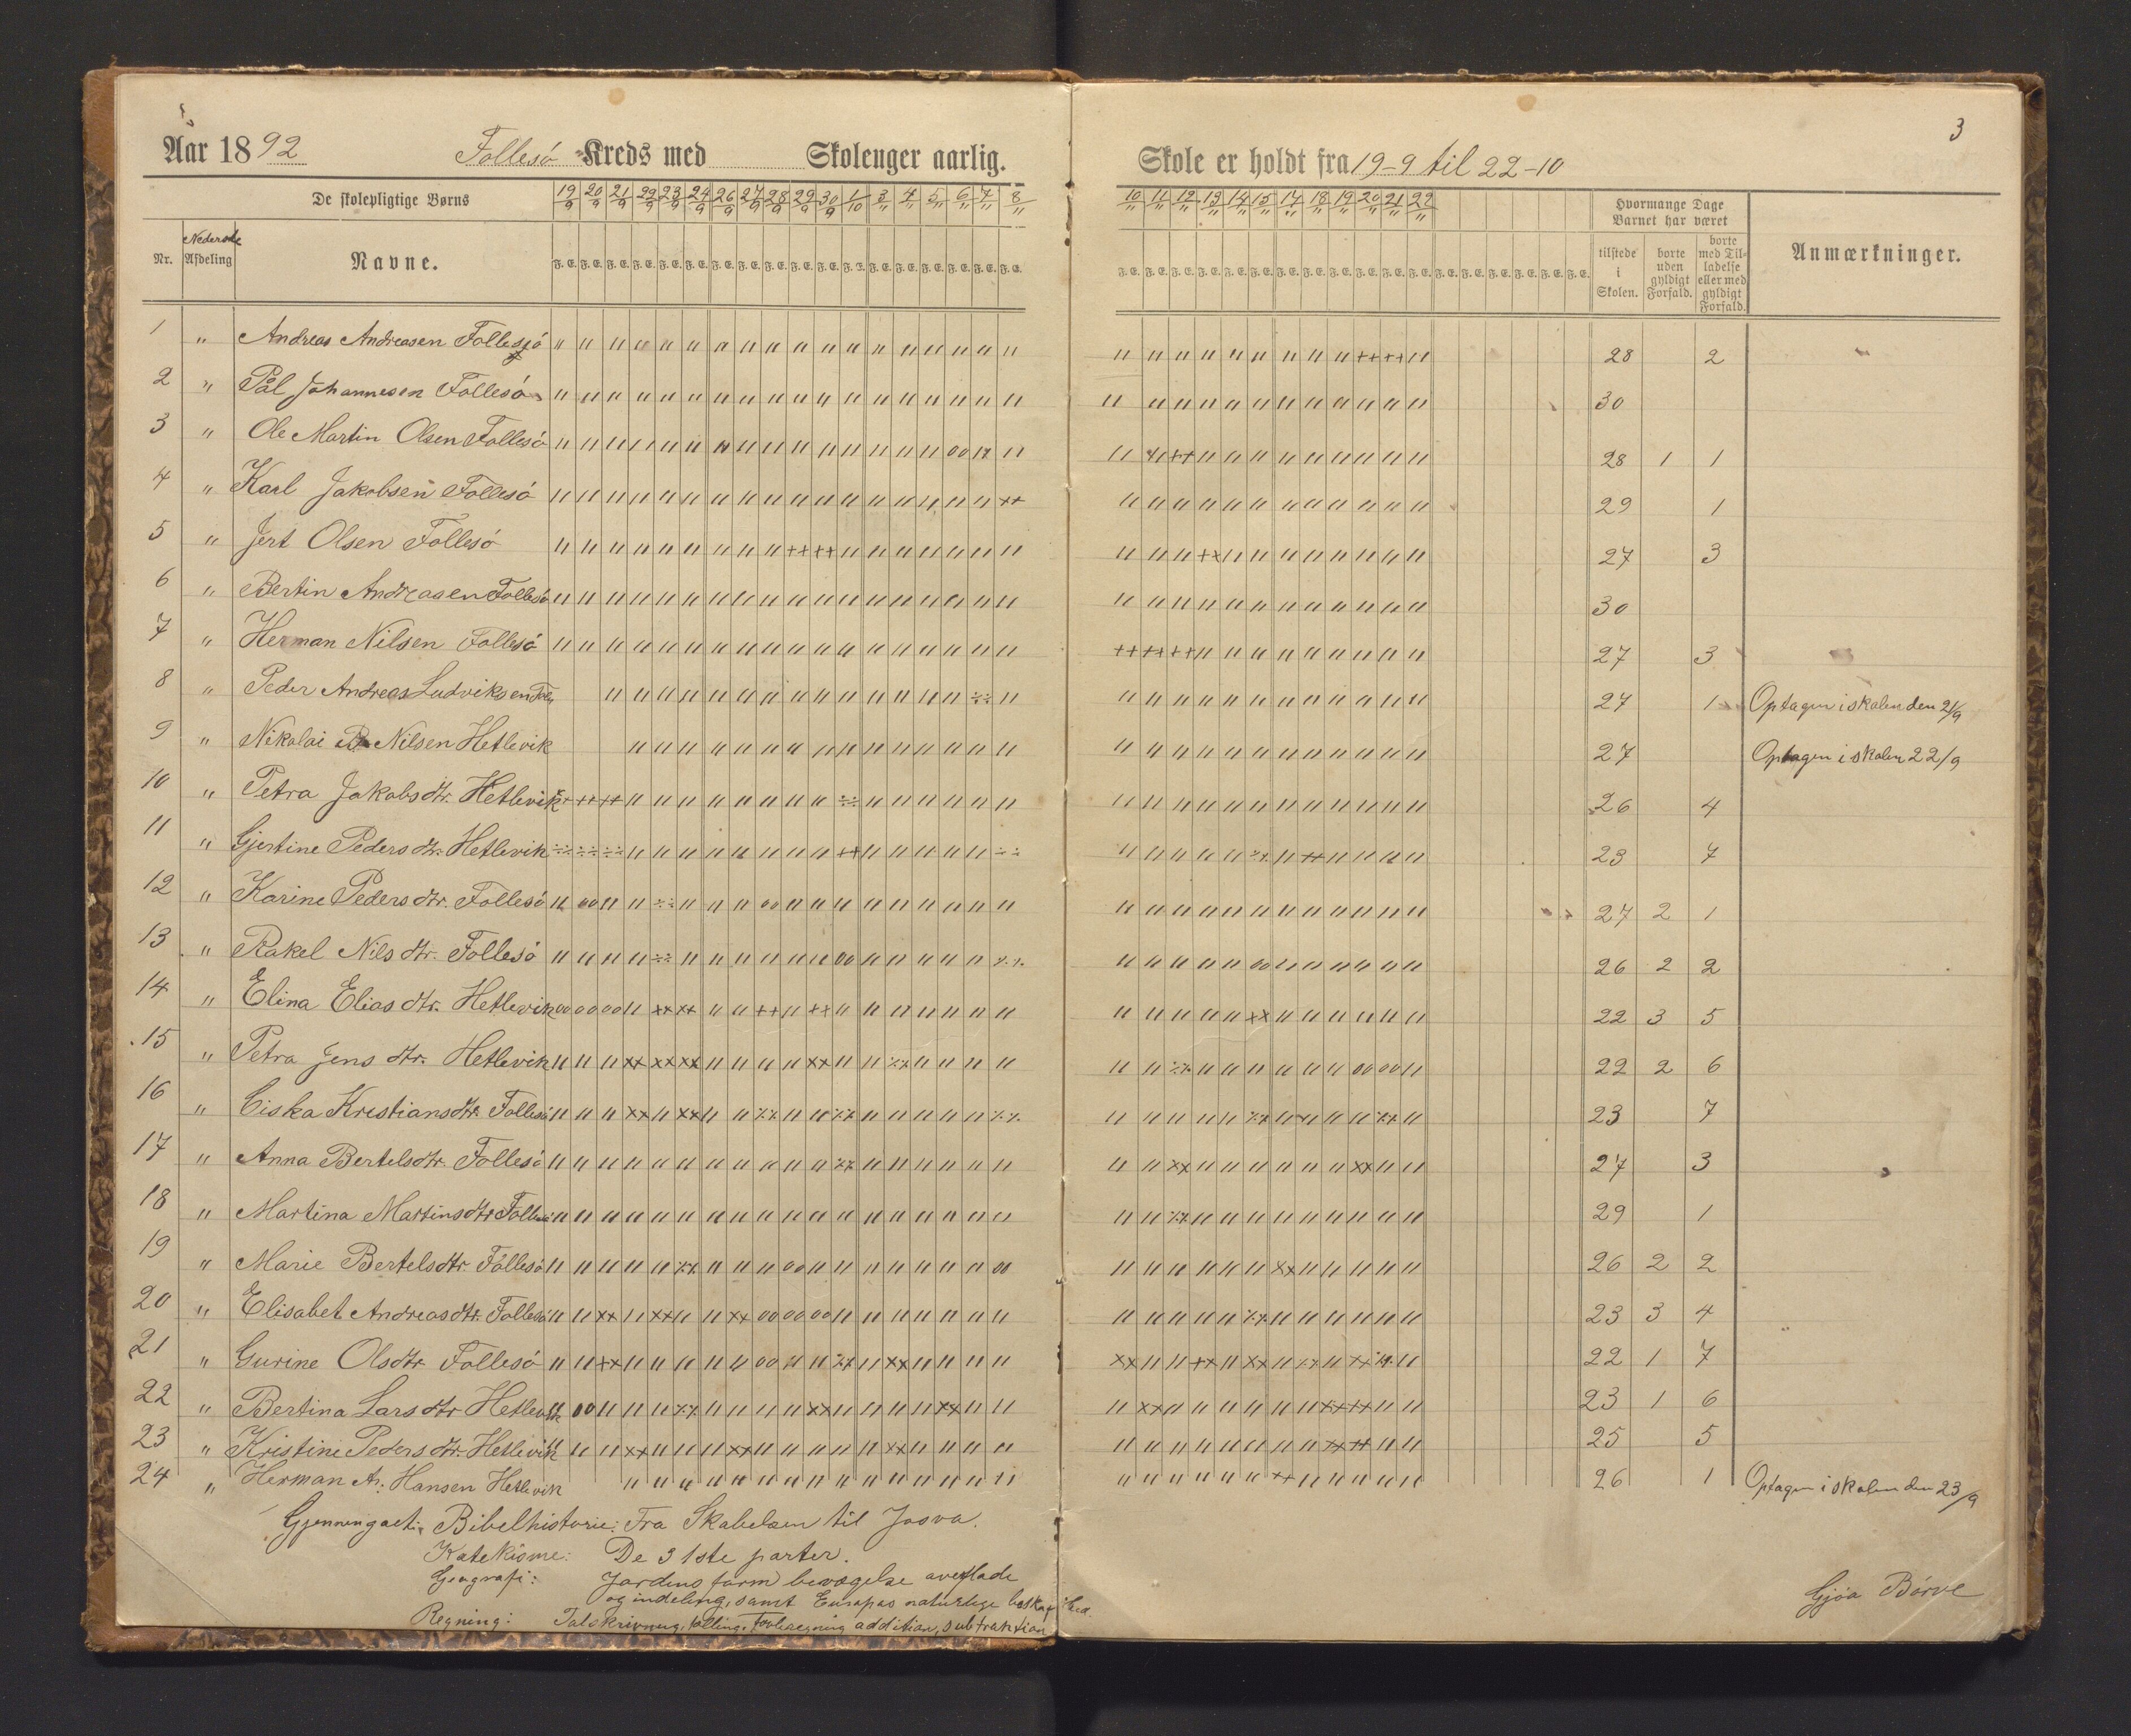 3
Aar 1892 Follesö Kreds med Skolenger aarlig. Skole er holdt fra 19-9 til 22-10
De skolepligtige Børns 19/9 20/9 21/9 22/9 23/9 24/9 26/9 27/9 28/9 29/9 30/9 1/10 3/" 4/" 5/" 6/" 7/" 8/" 10/" 11/" 12/" 13/" 14/" 15/" 17/" 18/" 19/" 20/" 21/" 22/" Hvormange Dage Barnet har været
Nr. Nederste Afdeling Navne. F. E. tilstede i Skolen. borte uden gyldigt Forfald. borte med Tilladelse eller med gyldigt Forfald. Anmærkninger.
1 " Andreas Andreasen Follesjö 28 2
2 " Pål Johannesen Follesö 30
3 " Ole Martin Olsen Follesö 28 1 1
4 " Karl Jakobsen Follesö 29 1
5 " Jert Olsen Follesö 27 3
6 " Bertin Andreasen Follesö 30
7 " Herman Nilsen Follesö 27 3
8 " Peder Andreas Ludviksen 27 1 Optagen i skolen den 21/9
9 " Nikolai Nilsen Hetlevik 27 Optagen i skolen 22/9
10 " Petra Jakobsdtr. Hetlevik 26 4
11 " Gjertine Pedersdtr. Hetlevik 23 7
12 " Karine Pedersdtr. Follesö 27 2 1
13 " Rakel Nilsdtr. Follesö 26 2 2
14 " Elina Eliasdtr. Hetlevik 22 3 5
15 " Petra Jensdtr. Hetlevik 22 2 6
16 " Ciska Kristiansdtr. Follesö 23 7
17 " Anna Bertelsdtr. Follesö 27 3
18 " Martina Martinsdtr Follesö 29 1
19 " Marie Bertelsdtr Follesö 26 2 2
20 " Elisabet Andreasdtr. Follesö 23 3 4
21 " Gurine Olsdtr Follesö 22 1 7
22 " Bertina Larsdtr Hetlevik 23 1 6
23 " Kristine Pedersdtr. Hetlevik 25 5
24 " Herman A. Hansen Hetlevik 26 1 Optagen i skolen den 23/9
Gjennengaet: Bibelhistorie: Fra Skabelsen til Josva.
Katekisme: De 3 1ste parter.
Geografi: Jordens form bevægelse overflade
og indeling, samt Europas naturlige
Regning: Talskrivning, tælling, addition, subtraktion
Gjöa Börve